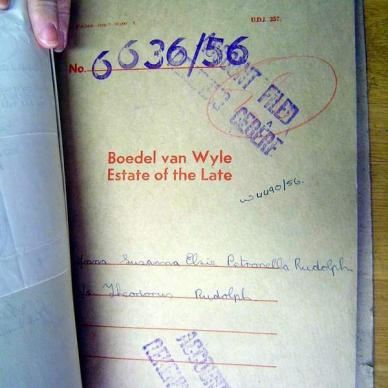 U.D.J. 257.
No. 6636/56
ACCOUNT FILED
Boedel van Wyle
Estate of the Late
W4490/56.
Susanna Elsie Petronella Rudolph
Theodorus Rudolph